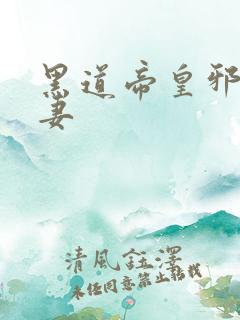 黑道帝皇邪
妻
清風鈺澤
未经同意禁止转载